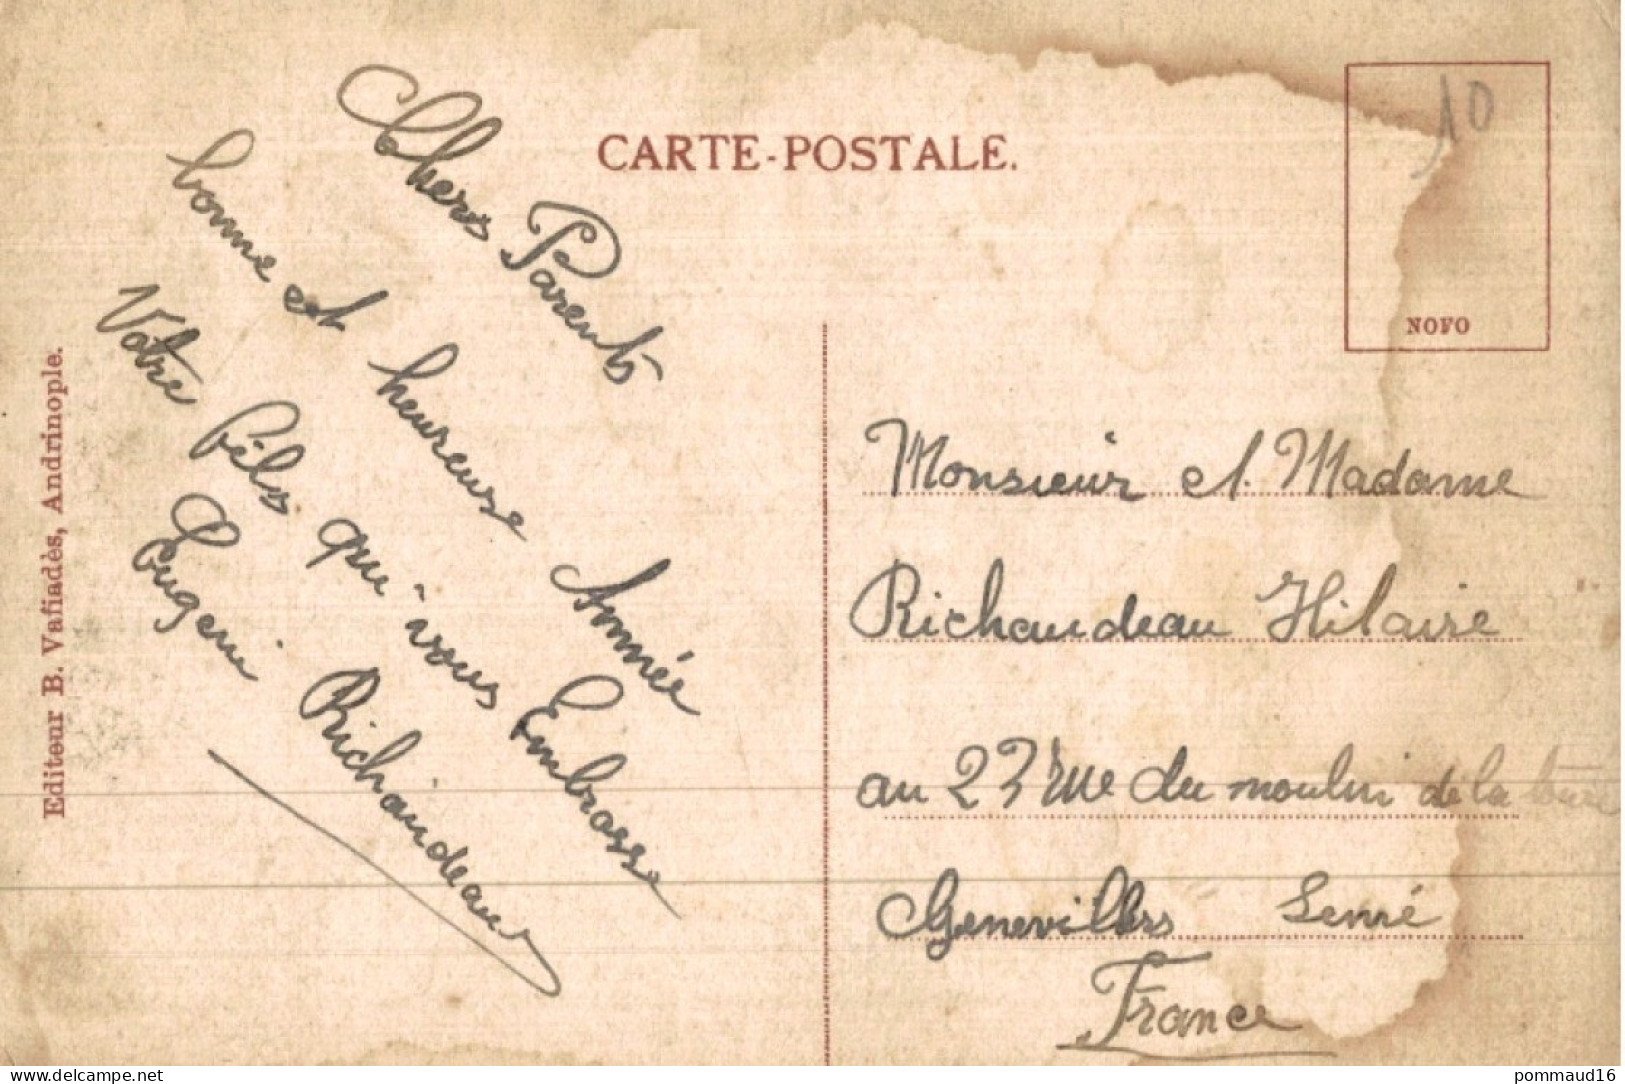 CARTE-POSTALE.
10
NOFO
Chers Parents
bonne et heureuse Année
Votre fils qui vous Embrasse
Eugeni Richaudeau
Editeur B. Vafiadès, Andrinople.
Monsieur et. Madame
Richaudeau Hilaire
au 23 rue du moulin de la
Genevillers
France
www.delcampe.net
pommaud16